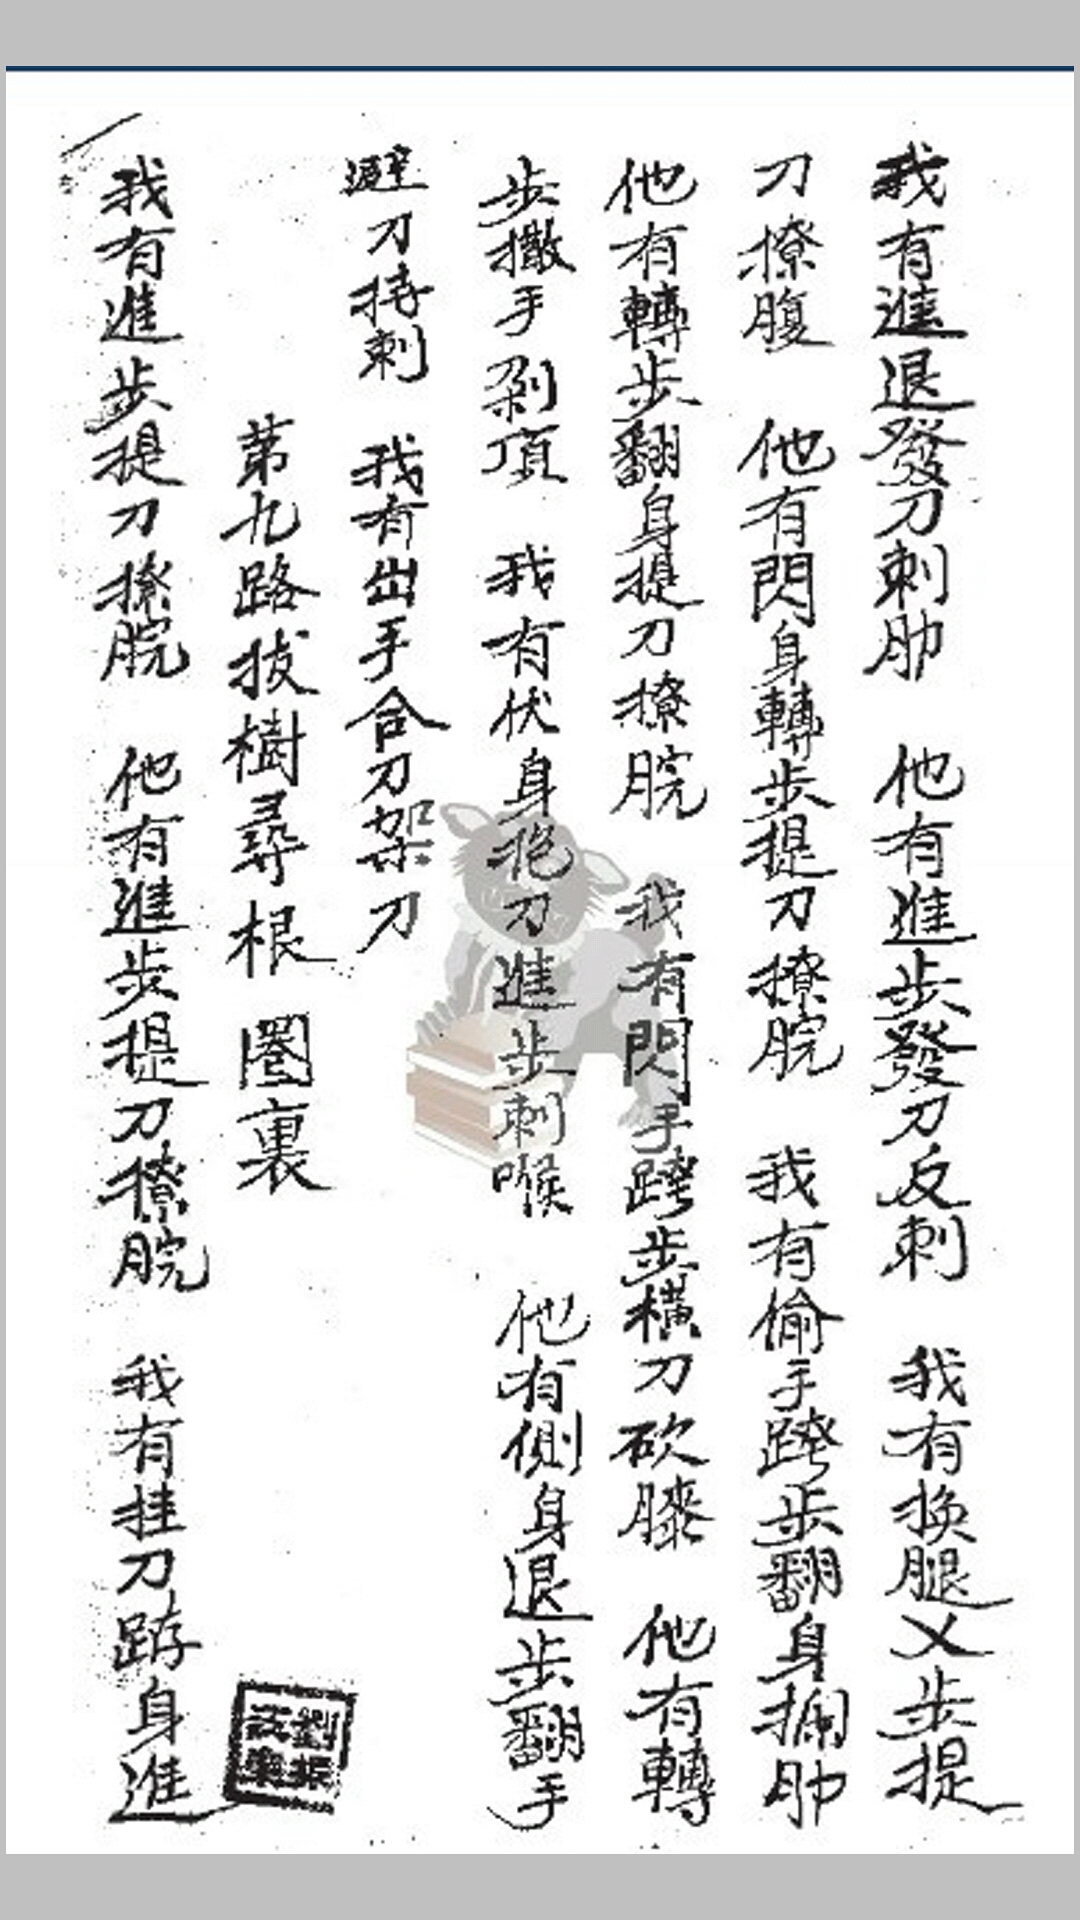 我有進退發刀刺肋 他有進步發刀反刺 我有换腿乂步提
刀撩腹 他有閃身轉步提刀撩脘 我有偷手跨步翻身捫肋
他有轉步翻身提刀撩脘 我有閃手跨步橫刀砍膝 他有轉
步撒手剁項 我有伏身抱刀進步刺喉 他有側身退步翻手
避刀持刺 我有出手合刀架刀
第九路拔樹尋根 圈裏
我有進步提刀撩脘 他有進步提刀撩脘 我有挂刀身進